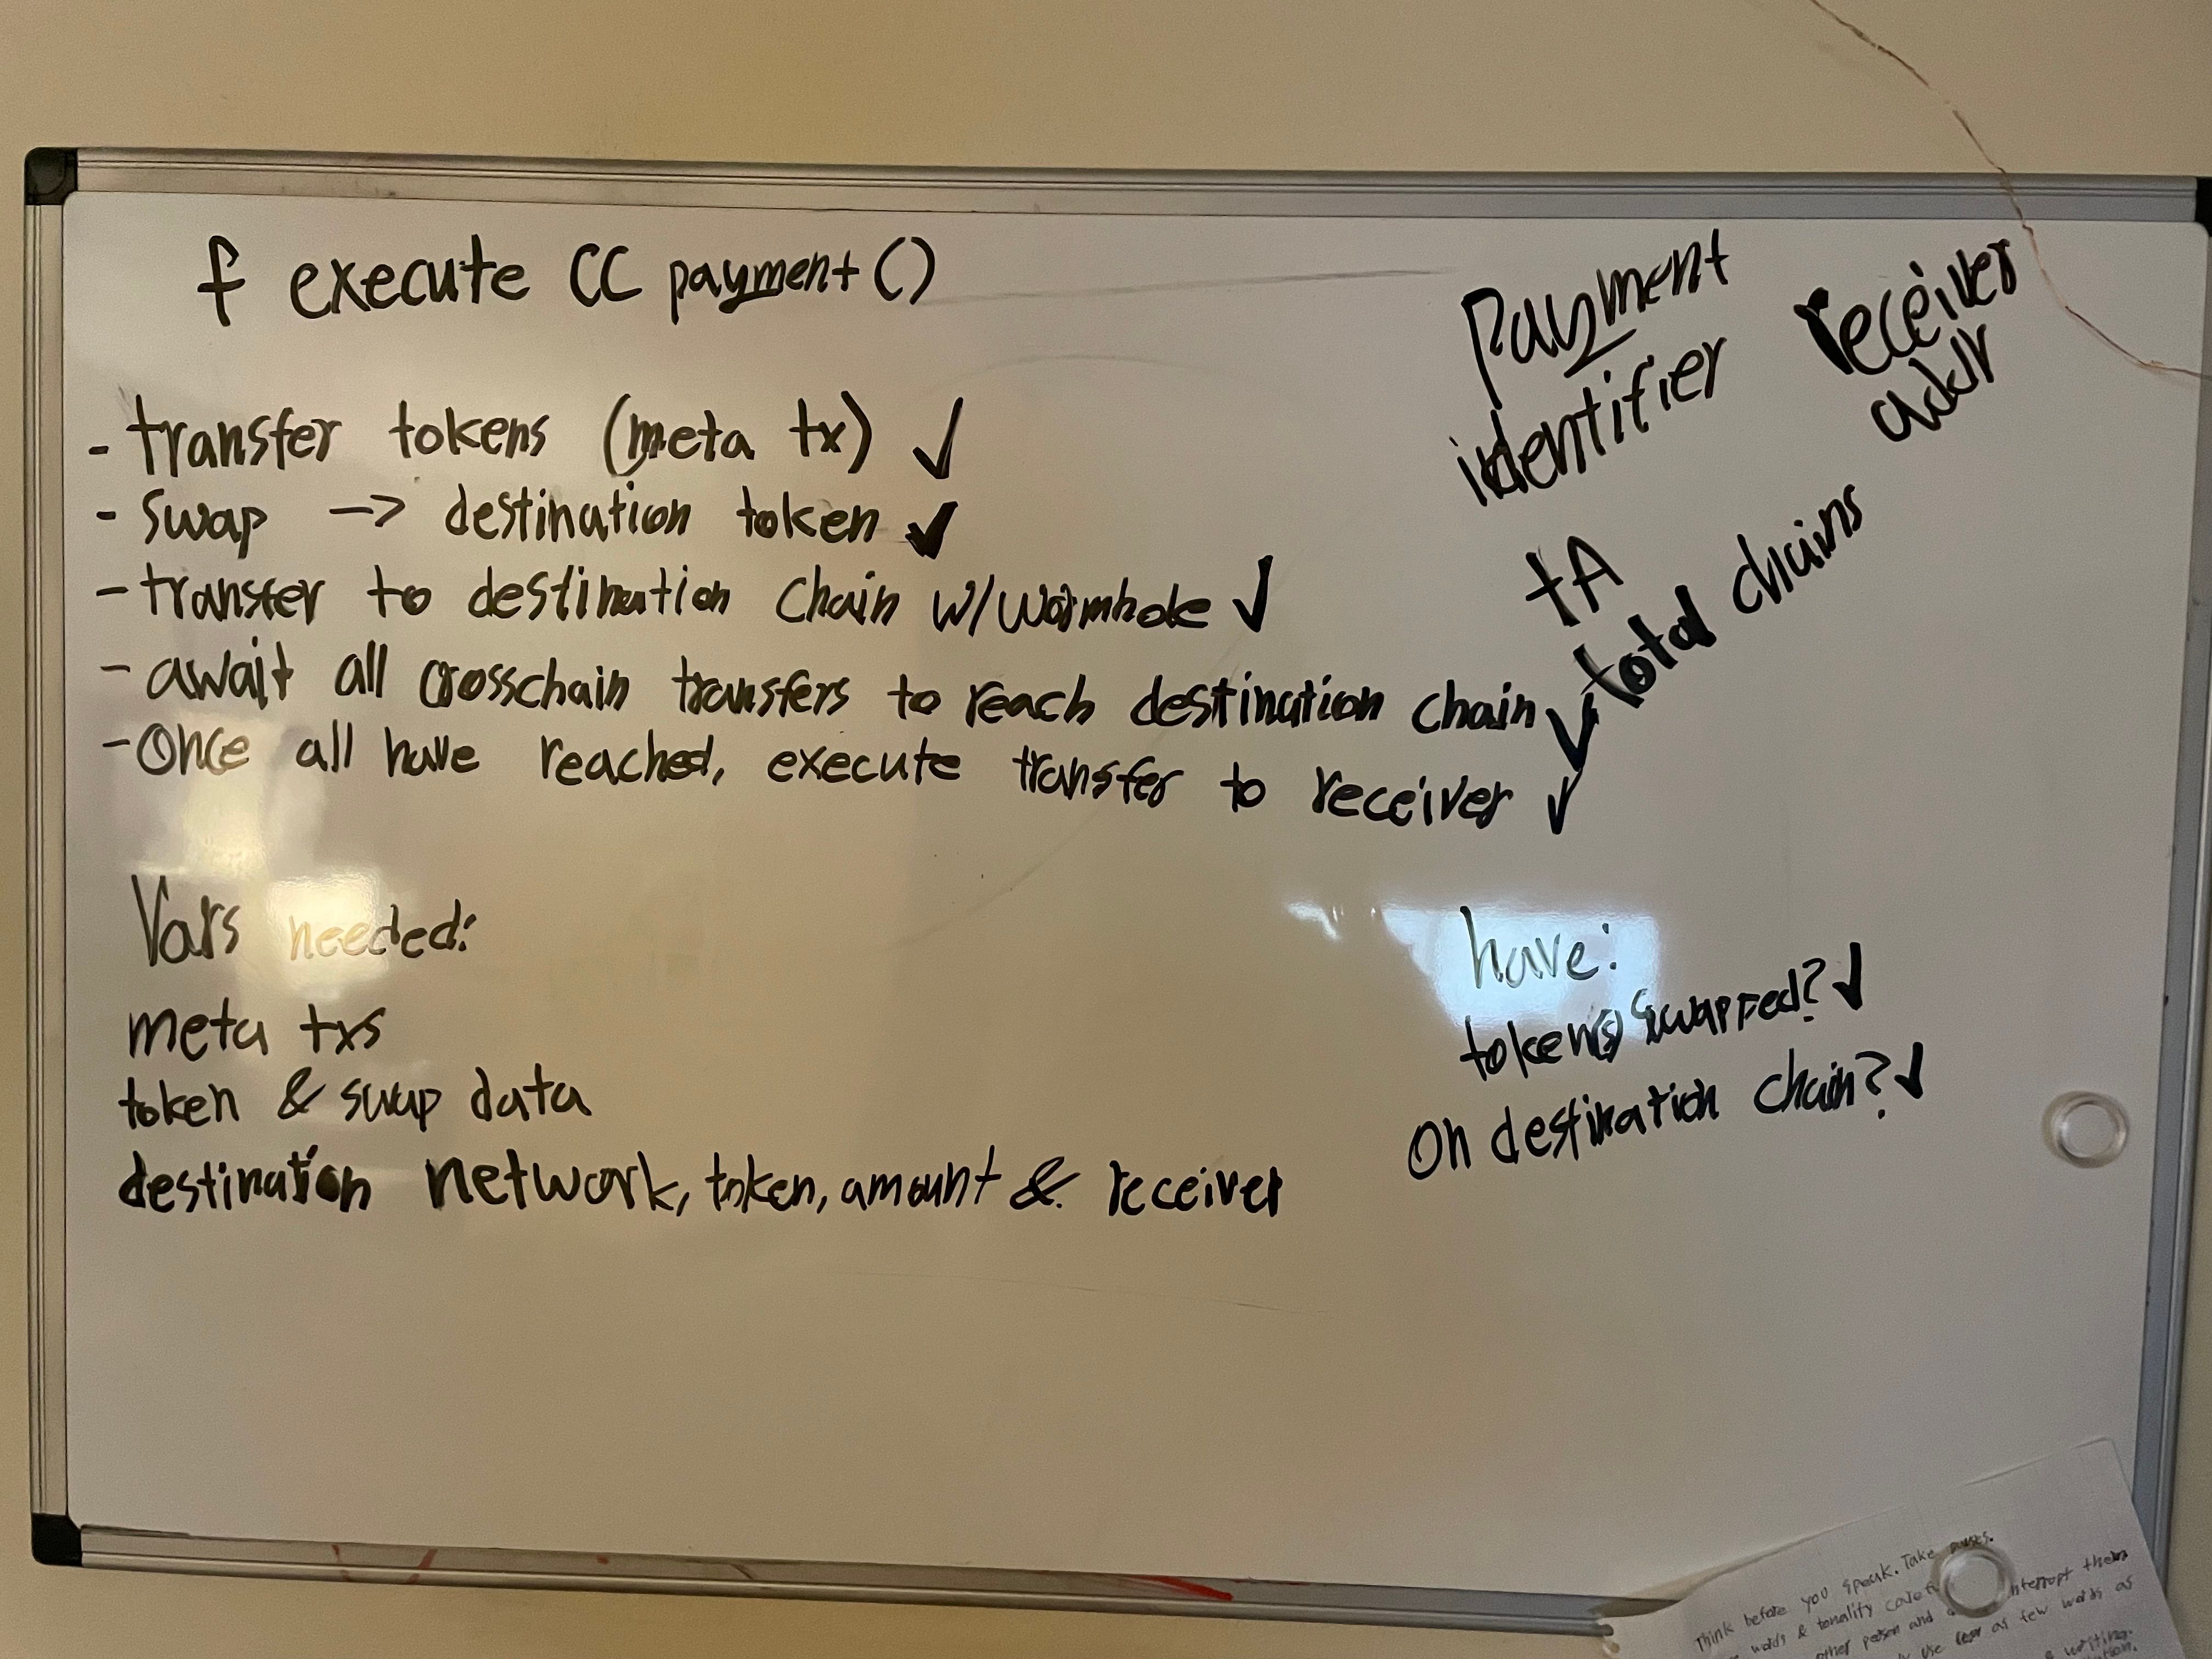 f execute CC payment ()
- transfer tokens (meta tx) ✓
- swap -> destination token ✓
- transfer to destination chain w/wormhole ✓
- await all crosschain transfers to reach destination chain ✓
- Once all have reached, execute transfer to receiver ✓
Payment
identifier
receiver
addr
tA
total chains
Vars needed:
meta txs
token & swap data
destination network, token, amount & receiver
have:
token(s) swapped? ✓
On destination chain? ✓
Think before you speak. Take pauses.
words & tonality
nterrupt them
other person and
use as few words as
& writing.